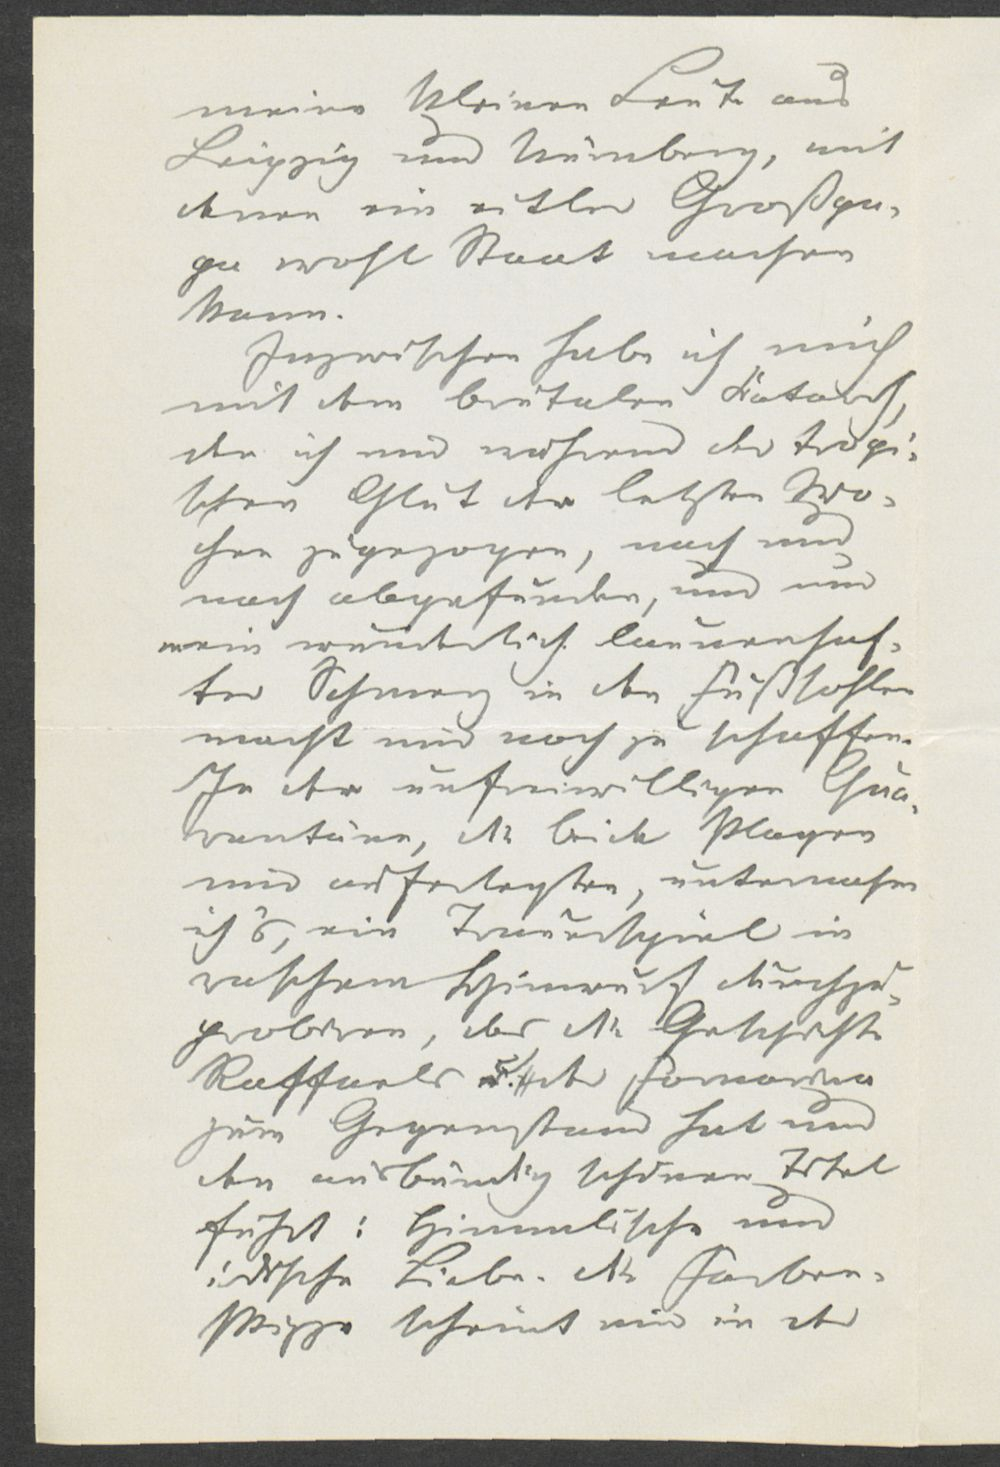 meine kleinen Leute aus
Leipzig und Nürnberg, mit
denen ein eitler Großpa-
pa wohl Staat machen
kann.
Inzwischen habe ich mich
mit dem brutalen Katarrh,
den ich mir während der tropi-
schen Glut der letzten Wo-
chen zugezogen, nach und
nach abgefunden, und nur
ein wunderlich launenhaf-
ter Schmerz in den Fußsohlen
macht mir noch zu schaffen.
In der unfreiwilligen Qua-
rantäne, die beide Plagen
mir auferlegten, unternahm
ich's, ein Trauerspiel in
raschem Hinwurf durchzu-
probiren, das die Geschichte
Raffaels u. der Fornarina
zum Gegenstand hat und
den ausbündig schönen Titel
führt: Himmlische und
irdische Liebe. Die Farben-
skizze scheint mir in der